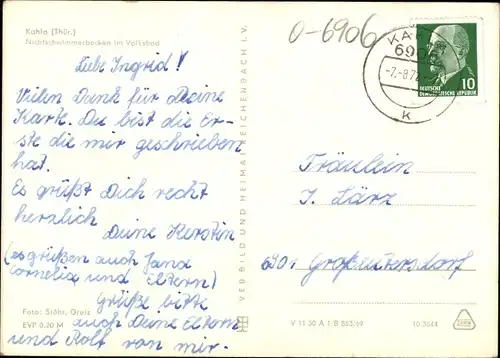 Kahla (Thür.)
Nichtschwimmerbecken im Volksbad
O-6906
Liebe Ingrid!
Vielen Dank für Deine
Karte. Du bist die Er-
ste die mir geschrieben
hat.
Es grüßt Dich recht
herzlich
Deine Kerstin
(es grüßen auch Jana
Cornelia und Eltern)
Grüße bitte
auch Deine Eltern
und Rolf von mir.
Foto: Stöhr, Greiz
EVP 0,20 M
VEB BILD UND HEIMAT REICHENBACH I. V.
KAHLA
6906
-7.-8.7
K
10
DEUTSCHE
DEMOKRATISCHE REPUBLIK
Fräulein
I. Lärz
6901 Großeutersdorf
V 11 50 A 1/B 863/69
10 3644